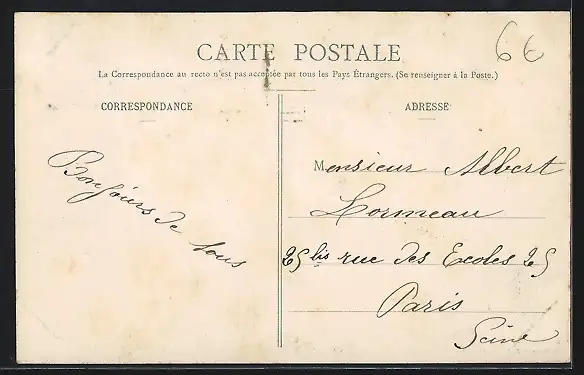 6€
CARTE POSTALE
La Correspondance au recto n'est pas acceptée par tous les Pays Étrangers. (Se renseigner à la Poste.)
CORRESPONDANCE
Bonjours de tous
ADRESSE
Monsieur Albert
Lormeau
25 bis rue des Ecoles 25
Paris
Seine